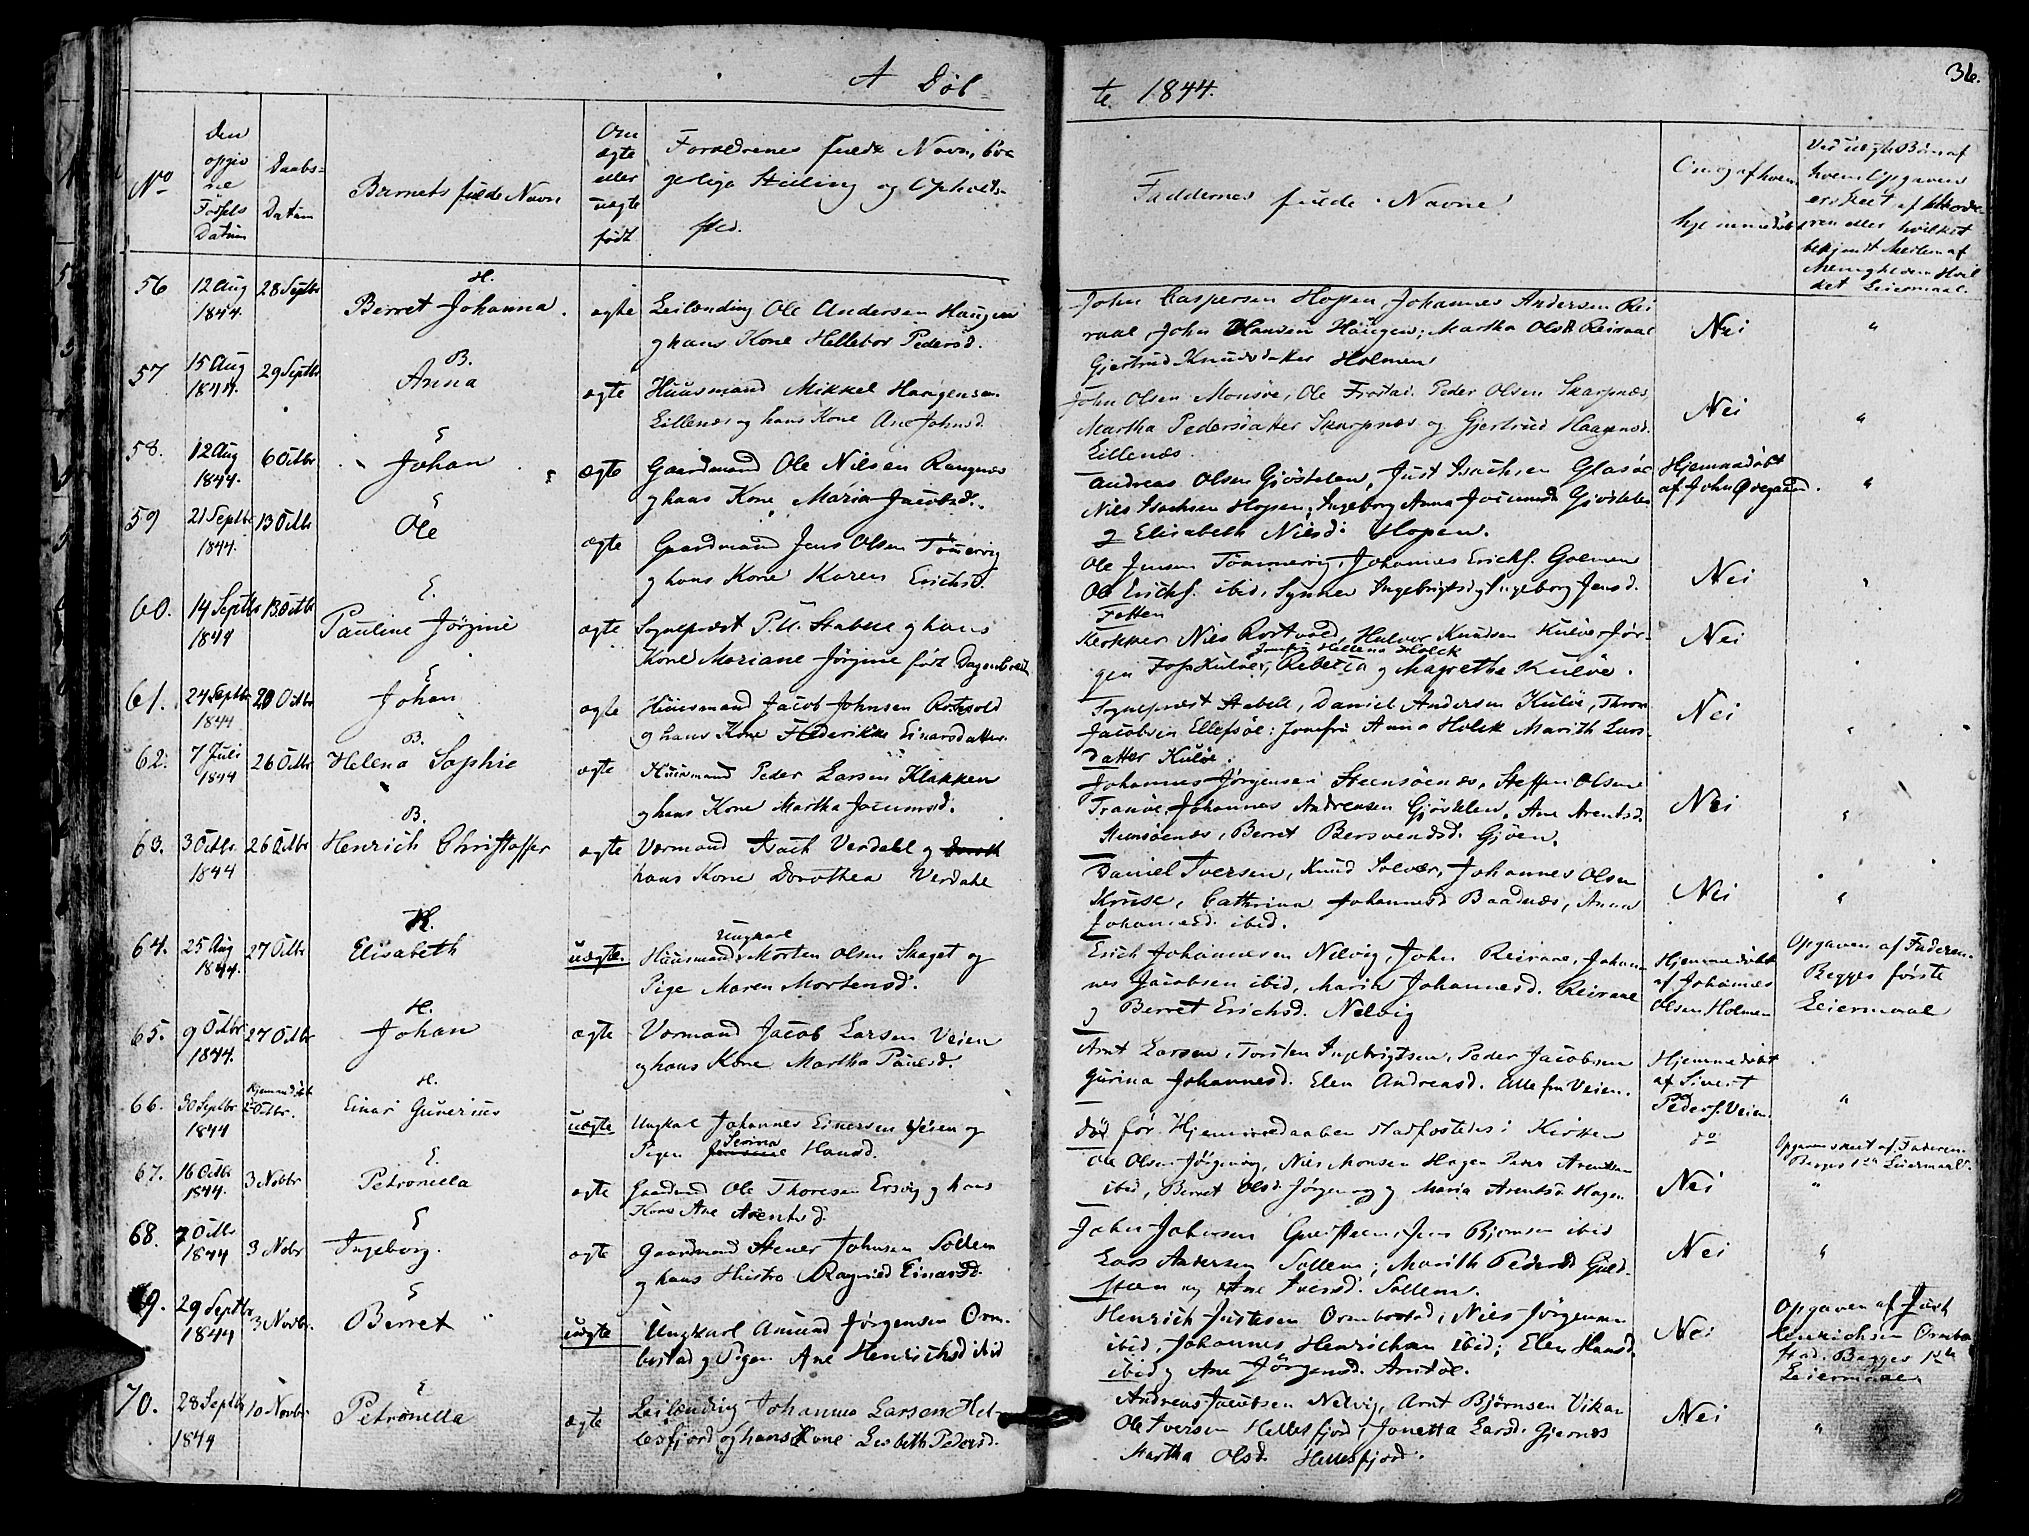 A Døb-
te 1844.
36.
No
den opgivne Fødsels Datum
Daabs-Datum
Barnets fulde Navn
Om ægte eller uægte født
Forældrenes fulde Navn, borgerlige Stilling og Opholdssted.
Faddernes fulde Navne
Om og af hvem hjemmedøbt
56
12 Aug 1844.
28 Septbr
H.
Berret Johanna.
ægte
Leilænding Ole Andersen Haugen
og hans Kone Hellebor Pedersd.
John Caspersen Hopen, Johannes Andersen Rei
raae, John Hansen Haugen; Martha Olsd. Reiraae
Gjertrud Knudsdatter Holmen
Nei
"
57
15 Aug 1844.
29 Septbr
B.
Anna
ægte
Huusmand Mikkel Haagensen
Lillenæs og hans Kone Ane Johnsd.
John Olsen Monsøe, Ole Frostad. Peder Olsen Skarpnæs
Martha Pedersdatter Skarpnæs og Gjertrud Haagensd.
Lillenæs.
Nei
"
58.
12 Aug 1844.
6 Octbr
E
Johan
ægte
Gaardmand Ole Nilsen Rangnæs
og hans Kone Maria Jacobsd.
Andreas Olsen Gjøstelen, Just Isachsen Glasøe
Nils Isachsen Hopen, Ingeborg Anna Jocumsd Gjøstelen
og Elisabeth Nielsd. Hopen.
Hjemmedøbt
af John Odegaard.
"
59
21 Septbr 1844.
13 Octbr
E
Ole
ægte
Gaardmand Jens Olsen Tømervig
og hans Kone Karen Erichsd.
Ole Jensen Tømmervig, Johannes Erichs. Goemen
Ole Erichs. ibid, Synnev Ingebrigtsd og Ingeborg Jensd.
Fætten
Nei
"
60.
14 Septbr 1844
13 Octbr
E.
Pauline Jørgine
ægte
Sognepræst P. U. Stabell og hans
Kone Mariane Jørgine født Dagenbrect
Klokker Nils Rostvold, Halvor Knudsen Kuløe Jør-
Jomfru Hellena Holck
gen Fos Kuløe, Rebecca og Magretha Kuløe.
Nei
61.
24 Septbr 1844
20 Octbr
E
Johan
ægte
Huusmand Jacob Johnsen Rotvold
og hans Kone Frederikke Einarsdatter.
Sognepræst Stabell, Daniel Andersen Kuløe, Thron
Jacobsen Ellefsøe; Jomfru Anna Holck Marith Lars-
datter Kuløe.
Nei
"
62.
7 Juli 1844
26 Octbr
B.
Helena Sophie
ægte
Huusmand Peder Larsen Klakken
og hans Kone Martha Jocumsd.
Johannes Jørgensen Steensøenæs, Steffen Olsen
Tranøe Johannes Andreasen Gjøstelen, Ane Arentsd.
Stensøenæs, Berret Bersvendsd. Gjøen.
Nei
"
63.
3 Octbr 1844
26 Octbr
B.
Henrich Christoffer
ægte
Værmand Isach Verdahl og
hans Kone Dorothea Verdahl
Daniel Iversen, Knud Solvær, Johannes Olsen
Kruse, Cathrina Johannesd Baadnæs, Anna
Johannesd. ibid.
Nei
"
64.
25 Aug 1844.
27 Octbr
H.
Elisabeth
uægte.
Ungkarl
Huusmand Morten Olsen Skaget og
Pige Maren Mortensd.
Erich Johannesen Nelvig, John Reiraae, Johan-
nes Jacobsen ibid, Marin Johannesd. Reiraae
og Berret Erichsd. Nelvig
Hjemmedøbt
af Johannes
Olsen Holmen
Opgaven af Faderen.
Begges første
Leiermaal
65.
9 Octbr 1844.
27 Octbr
H.
Johan
ægte
Værmand Jacob Larsen Veien
og hans Kone Martha Paulsd.
Arnt Larsen, Torsten Ingebrigtsen, Peder Jacobsen
Gurina Johannesd. Elen Andreasd. Alle fra Veien.
Hjemmedøbt
af Sivert
Peders. Veien.
66.
30 Septbr 1844
Hjemmedøbt
2 Octbr.
H.
Einar Guverius
uægte
Ungkarl Johannes Einersen Veien og
Serina
Pigen Hansd.
død før Hjemmedaaben stadfæstedes i Kirken
do
Opgaven skeet af Faderen
Begges 1ste Leiermaal
67.
16 Octbr 1844.
3 Novbr
E.
Petronella
ægte
Gaardmd Ole Thoresen Ersvig og hans
Kone Ane Arentsd.
Ole Olsen Jørgenvog, Nils Monsen Hagen Peder Arentsen
ibid, Berret Olsd Jørgenvog og Maria Arentsd Hagen
Nei
"
68.
7 Octbr 1844
3 Nobr
E
Ingeborg.
ægte
Gaardmand Stener Johnsen Sollem
og hans Hustro Magnild Einarsd.
John Johnsen Guldsteen, Jens Bjørnsen ibid
Lars Andersen Sollem; Marith Pedersd Guld-
steen og Ane Iversd. Sollem.
Nei
"
69.
29 Septbr 1844
3 Novbr.
E
Berret
uægte
Ungkarl Amund Jørgensen Orm-
bostad og Pigen Ane Henrichsd ibid
Henrich Justesen Ormbostad, Niels Jørgensen
ibid, Johannes Henrichsen ibid; Elen Hansd.
ibid og Ane Jørgensd. Arnsøe.
Nei
Opgaven af Just
Henrichsen Ormbo-
stad. Begges 1ste
Leiermaal
70.
28 Septbr 1844
10 Novbr
E
Petronella
ægte
Leilænding Johannes Larsen Hel-
lesfjord og hans Kone Lisbeth Pedersd.
Andreas Jacobsen Nelvig, Arnt Bjørnsen Vikan
Ole Iversen Hellesfjord, Jonetta Larsd. Gjernæs
Martha Olsd. Hellesfjord.
Nei
"